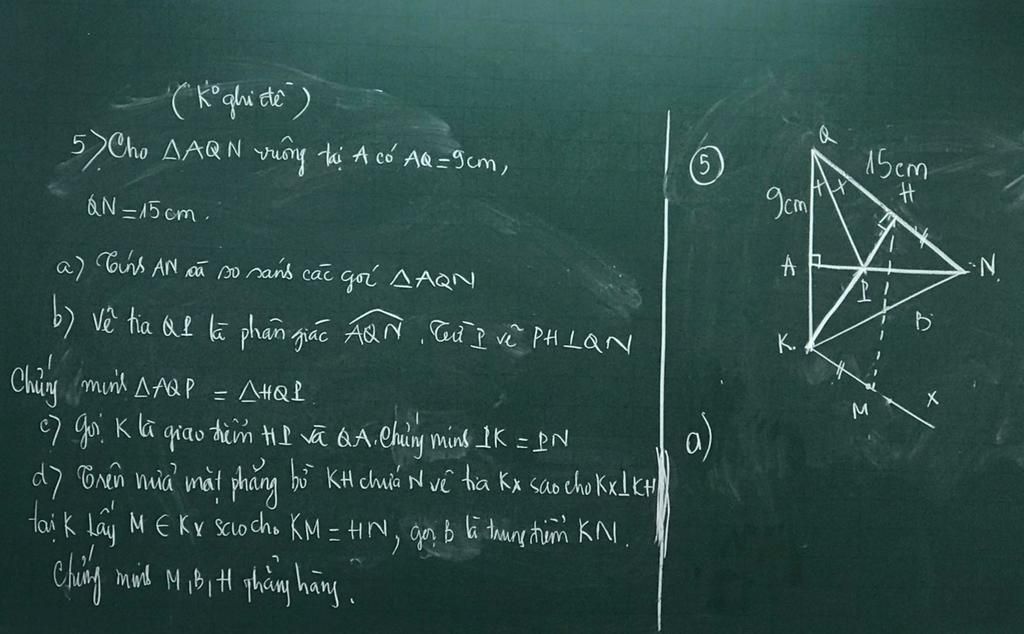 (K° ghi đề)
5) Cho △AQN vuông tại A có AQ = 9cm,
QN = 15cm.
a) Tính AN và so sánh các góc △AQN
b) Vẽ tia QP là phân giác AQN. Từ P vẽ PH ⊥ QN
Chứng minh △AQP = △HQP.
c) Gọi K là giao điểm HP và QA. Chứng minh PK = PN
d) Trên nửa mặt phẳng bờ KH chứa N vẽ tia Kx sao cho Kx ⊥ KH
tại K lấy M ∈ Kx sao cho KM = HN, gọi B là trung điểm KN.
Chứng minh M, B, H thẳng hàng.
5
Q
15cm
H
9cm
A
N
P
B
K
M
x
a)